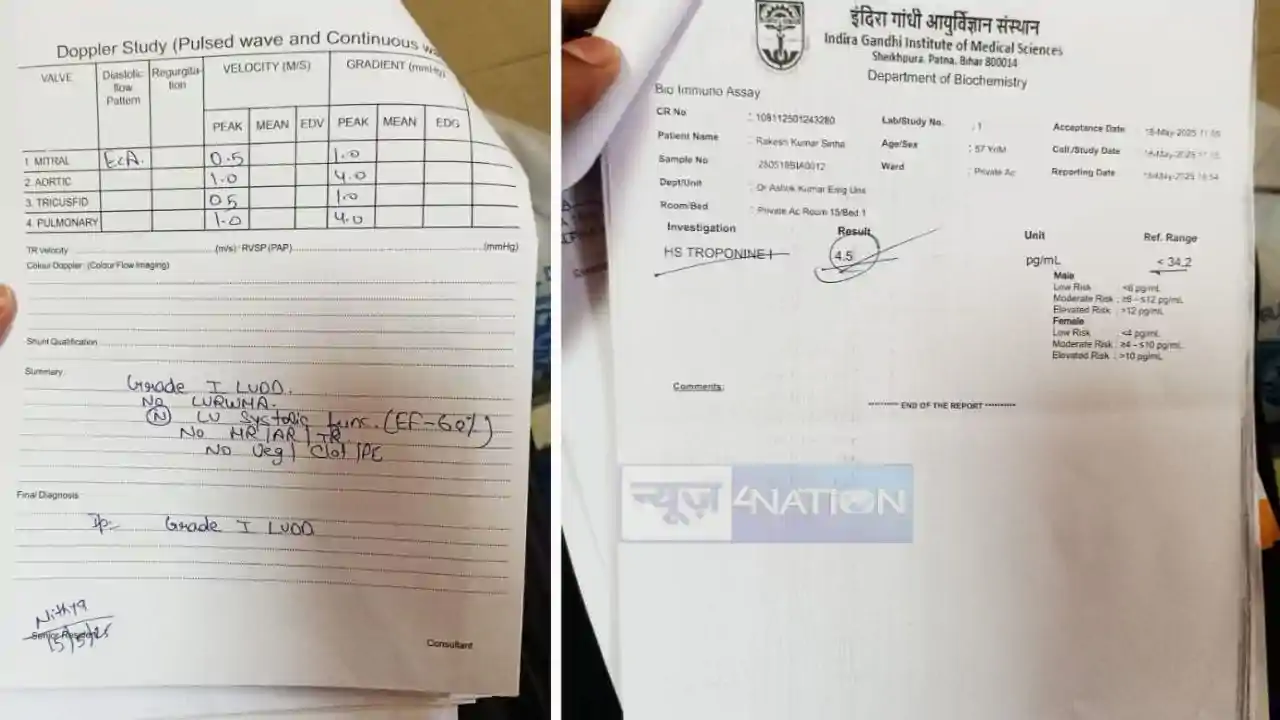 Doppler Study (Pulsed wave and Continuous
VALVE Diastolic flow Pattern Regurgita-tion VELOCITY (M/S) GRADIENT (mmHg)
PEAK MEAN EDV PEAK MEAN EDG
1. MITRAL E<A. 0.5 1.0
2. AORTIC 1.0 4.0
3. TRICUSFID 0.5 1.0
4. PULMONARY 1.0 4.0
TR velocity (m/s) RVSP (PAP) (mmHg)
Colour Doppler (Colour Flow Imaging)
Shunt Qualification
Summary
Grade I LVDD.
No LVRWMA.
(N) LV Systolic func. (EF-60%)
No MR/AR/TR
No Veg/ Clot/PE
Final Diagnosis
Grade I LVDD
Nithya
Senior Resident
15/5/25
Consultant
इंदिरा गांधी आयुर्विज्ञान संस्थान
Indira Gandhi Institute of Medical Sciences
Sheikhpura, Patna, Bihar 800014
Department of Biochemistry
Bio Immuno Assay
CR No : 108112501243280 Lab/Study No. : 1 Acceptance Date
Patient Name : Rakesh Kumar Sinha Age/Sex : 57 Yr/M Coll./Study Date
Sample No 250516BIA0012 Ward : Private Ac Reporting Date
Dept/Unit : Dr Ashok Kumar Emg Unit
Room/Bed : Private Ac Room 15/Bed 1
Investigation Result Unit Ref. Range
HS TROPONINE I 4.5 pg/mL < 34.2
Male
Low Risk <6 pg/mL
Moderate Risk : ≥6 - ≤12 pg/mL
Elevated Risk : >12 pg/mL
Female
Low Risk <4 pg/mL
Moderate Risk : ≥4 - ≤10 pg/mL
Elevated Risk : >10 pg/mL
Comments:
********** END OF THE REPORT **********
न्यूज़ 4NATION